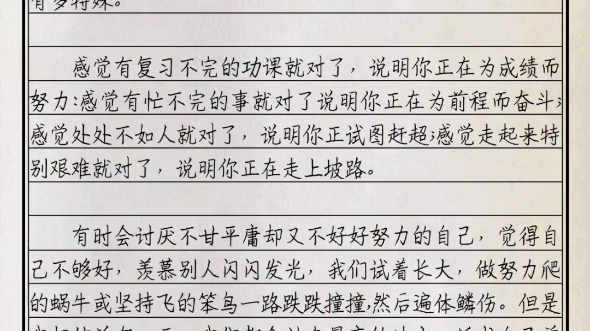 有多特殊。
感觉有复习不完的功课就对了，说明你正在为成绩而
努力;感觉有忙不完的事就对了说明你正在为前程而奋斗;
感觉处处不如人就对了，说明你正试图赶超;感觉走起来特
别艰难就对了，说明你正在走上坡路。
有时会讨厌不甘平庸却又不好好努力的自己，觉得自
己不够好，羡慕别人闪闪发光，我们试着长大，做努力爬
的蜗牛或坚持飞的笨鸟一路跌跌撞撞,然后遍体鳞伤。但是